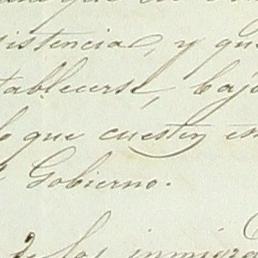 istencia, y que
tablecerse, bajo
lo que cuesten en
Gobierno.
de los inmigra